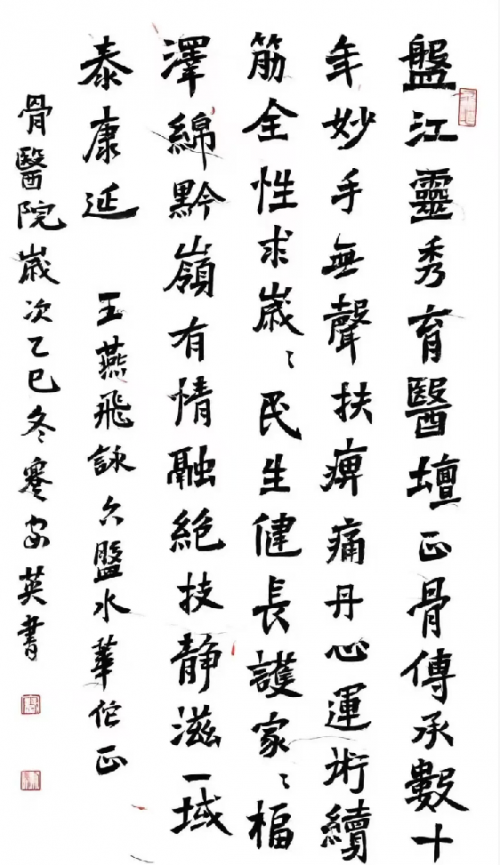 盤江靈秀育醫壇正骨傳承數十
年妙手無聲扶痺痛丹心運術續
筋全性求嵗〻民生健長護家〻福
澤綿黔嶺有情融絕技靜滋一域
泰康延 王燕飛詠六盤水華佗正
骨醫院嵗次乙巳冬寒安英書